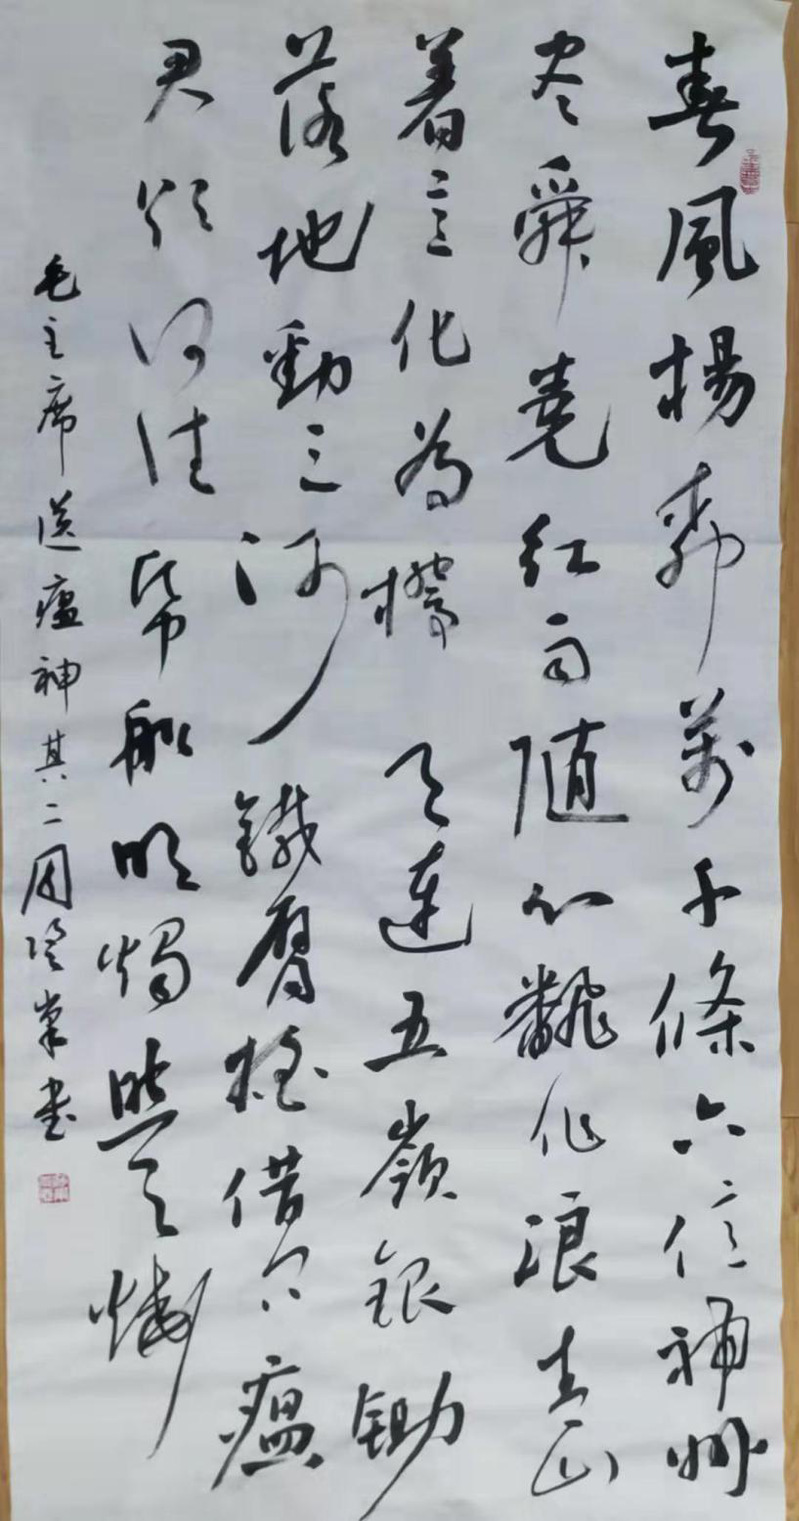 春風楊柳萬千條六億神州
尽舜堯紅雨隨心飜作浪青山
着意化為橋天連五嶺銀锄
落地動三河鐵臂搖借问瘟
君欲何往帋船明燭照天燒
毛主席送瘟神其二周书